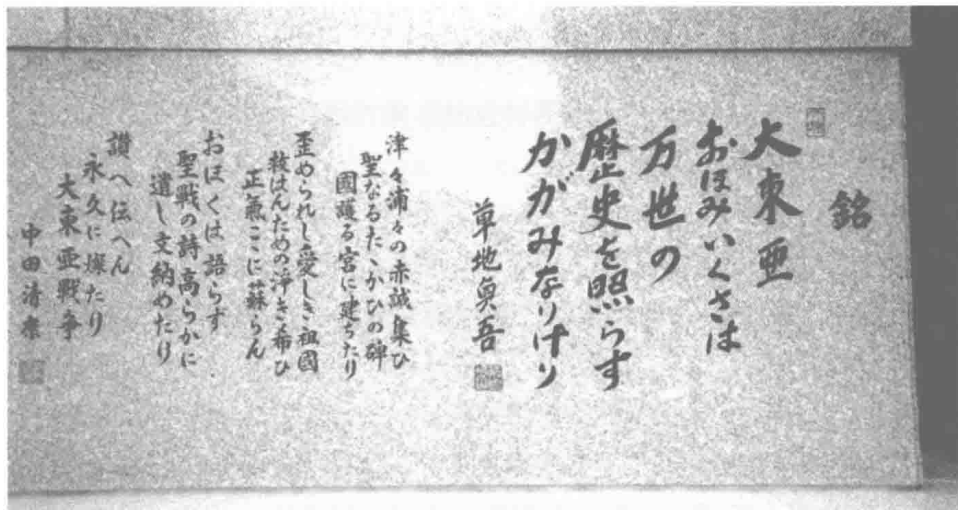 銘
大東亜
おほみいくさは
万世の
歴史を照らす
かがみなりけり
草地貞吾
津々浦々の赤誠集ひ
聖なるたゝかひの碑
國護る宮に建ちたり
歪められし愛しき祖國
祓はんための淨き希ひ
正氣ここに蘇らん
おほくは語らず
聖戦の詩高らかに
遺し文納めたり
讃へ伝へん
永久に燦たり
大東亜戦争
中田清康